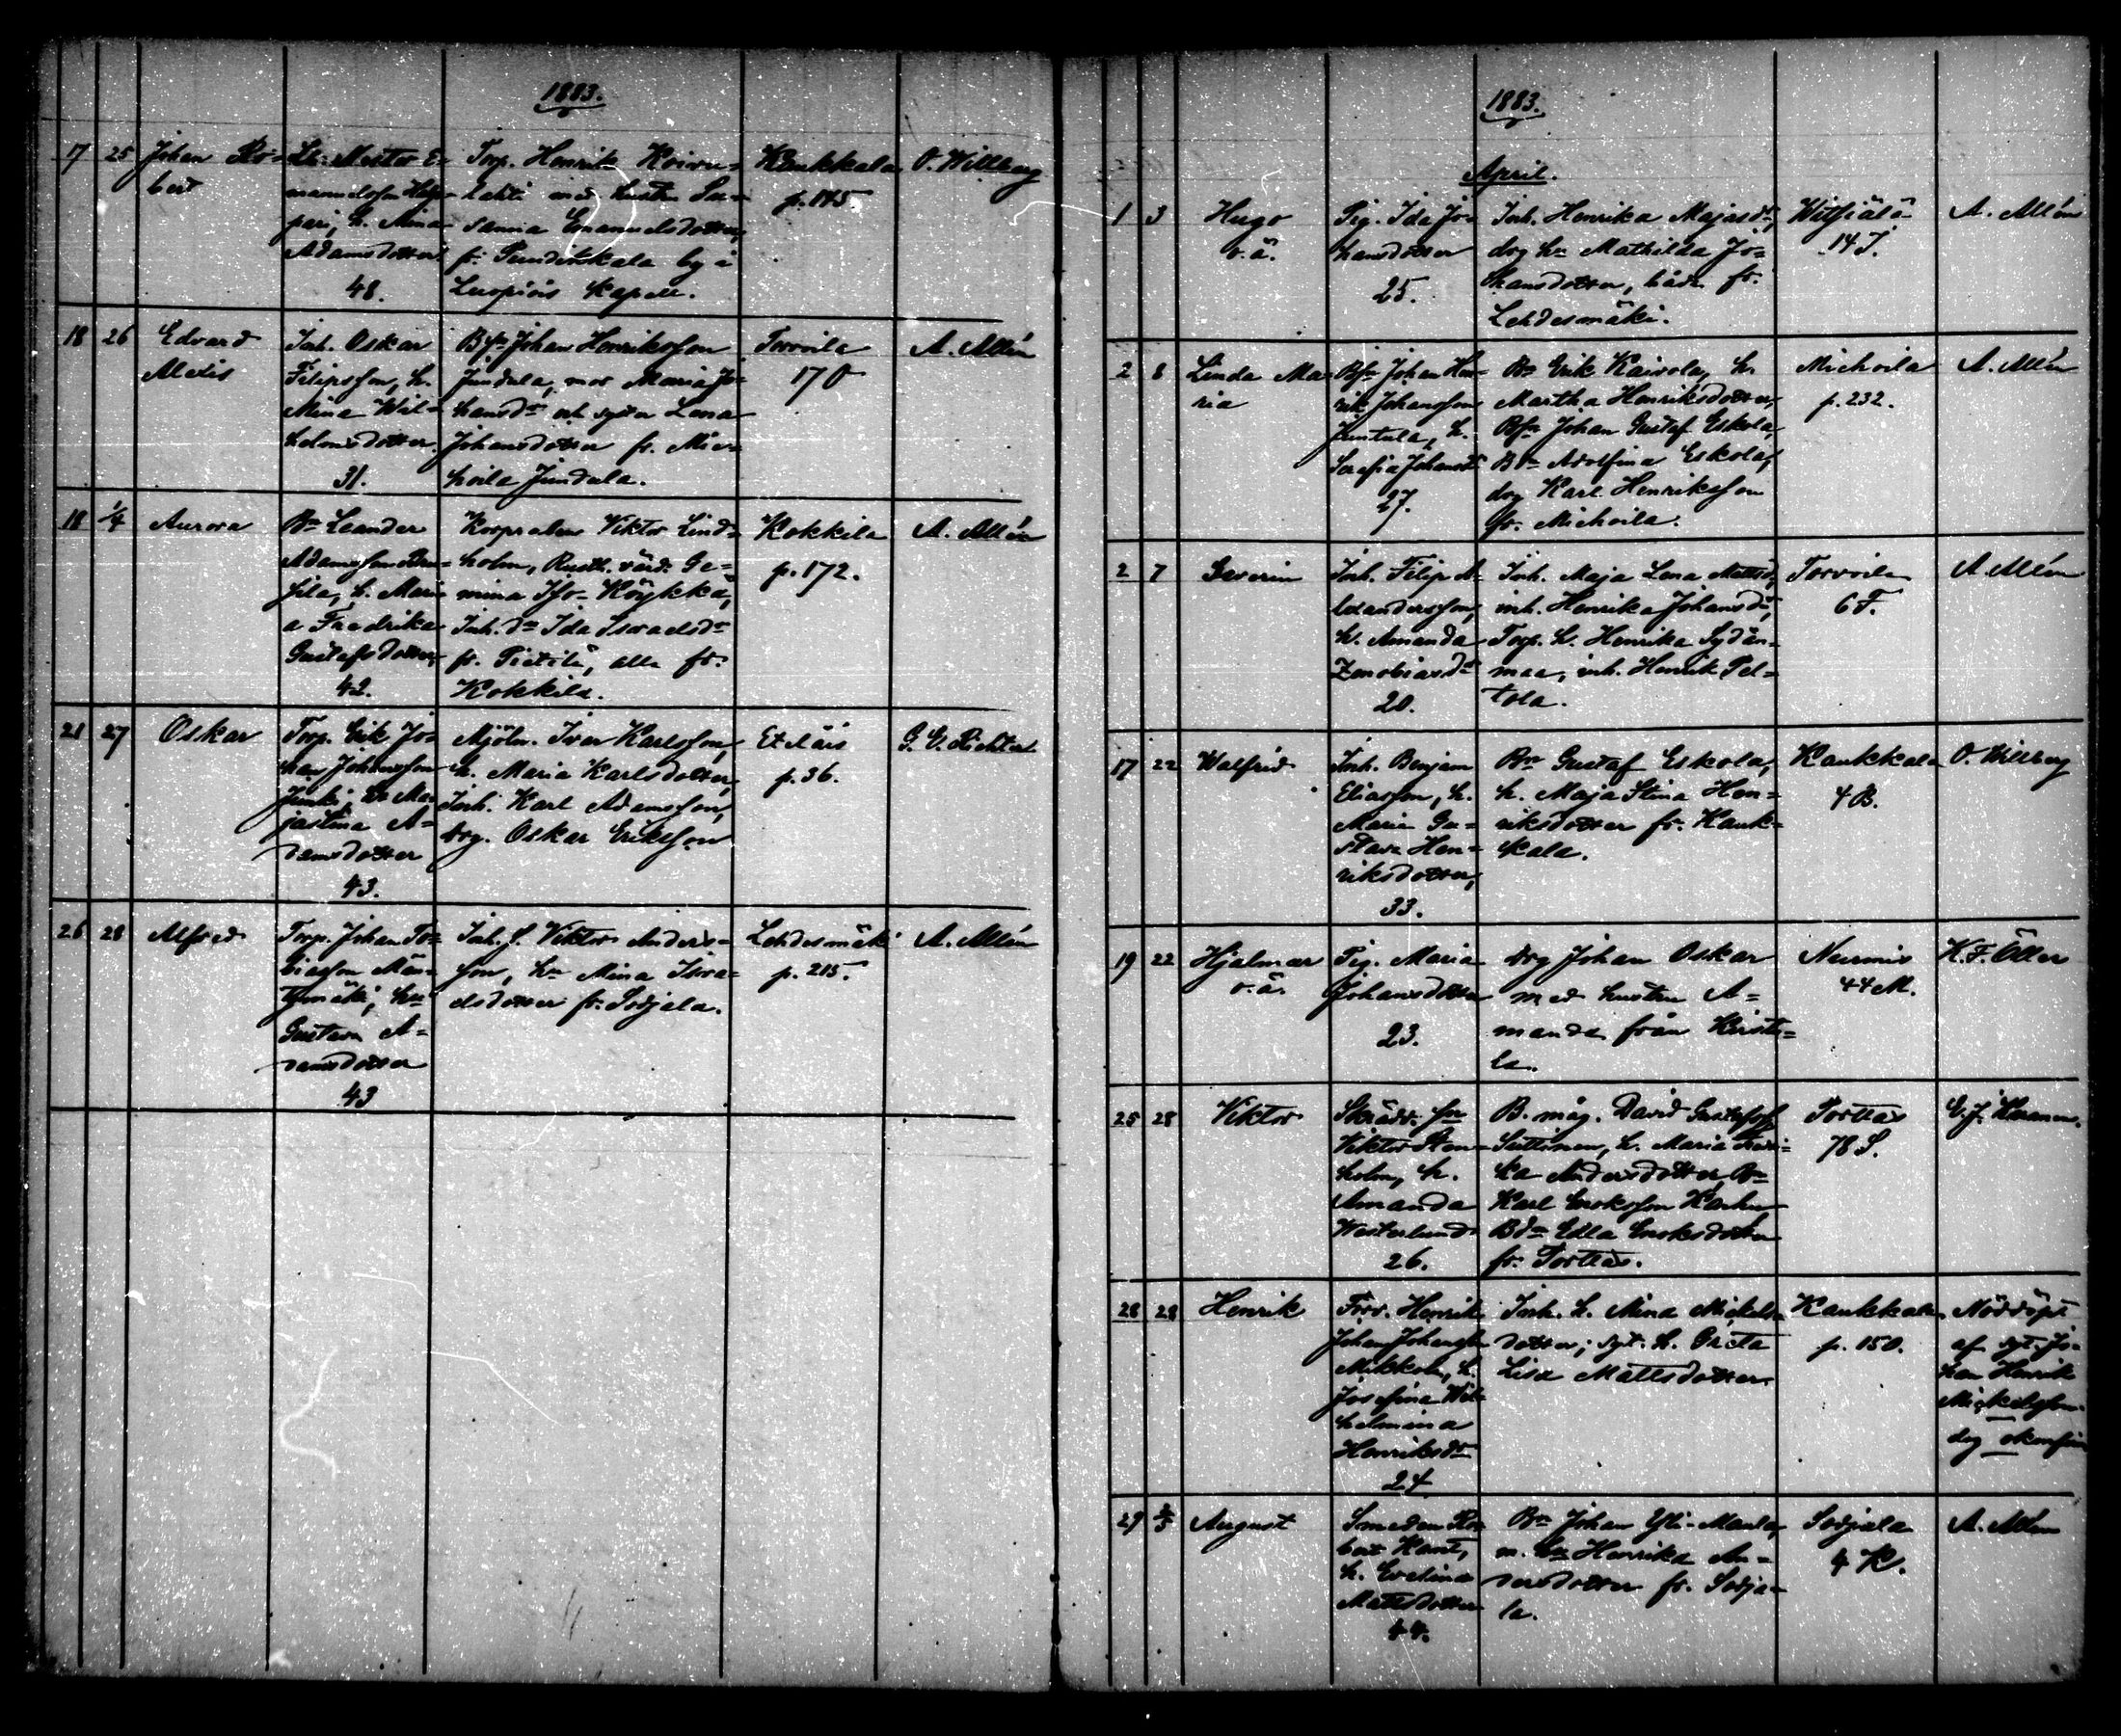 1883.
17 25 Johan Ro-
bert
Emanuelsson
h. Mina
Adamsdotter
48.
Torp. Henrik Koivu-
lahti med hustr. Su-
sanna Emanuelsdotter,
fr. by i
Luopiois kapell.
Kaukkala
p. 145.
O. Willberg
18 26 Edvard
Alexis
Inh. Oskar
Filipsson, h.
Mina Wil-
helmsdotter.
31.
Bsn Johan Henriksson
Jundula, mor Maria Jo-
hansdr och syster Lena
Johansdotter fr. Mic-
hoila Jundula.
Torvoila
170
A. Allén
18 1/4 Aurora
Bn Leander
Adamsson
h. Mari-
a Fredrika
Gustafsdotter,
42.
Korpralen Viktor Lind-
holm, Rusth. värd. Ge-
mina Iso-Köykkä,
Inh. dr Ida Israelsdr
fr. Pietilä, alla fr.
Kokkila.
Kokkila
p. 172.
A. Allén
21 27 Oskar
Torp. Erik Jo-
han Johansson
Junki, hu Ma-
jastina A-
damsdotter
43.
Mjöln. Ivar Karlsson,
h. Maria Karlsdotter,
Inh. Karl Adamsson,
drg. Oskar Eriksson
Eteläis
p. 36.
G. E. Richter
26 28 Alfred
Torp. Johan To-
biasson Män-
tymäki, hu
Gustava A-
damsdotter
43
Inh. s. Viktor Anders-
son, hu Mina Isra-
elsdotter fr. Sorjala.
Lehdesmäki
p. 215.
A. Allén
1883.
April.
1 3 Hugo
o.ä.
Pig. Ida Jo-
hansdotter
25.
Inh. Henrika Majasdr,
drg hu Mathilda Jo-
hansdotter, båda fr.
Lehdesmäki.
Witsiälä
14 I.
A. Allén
2 8 Linda Ma-
ria
Bsn Johan Hen-
rik Johansson
Juntula, h.
Serafia Johansdr
27.
Bn Erik Kaivola, h.
Martha Henriksdotter,
Bsn Johan Gustaf Eskola,
Bdr Adolfina Eskola,
drg Karl Henriksson
fr. Michoila.
Michoila
p. 232.
A. Allén
2 7 Severin
Inh. Filip A-
lexandersson,
h. Amanda
Zenobiasdr
20.
Inh. Maja Lena Mattsdr,
inh. Henrika Johansdr,
Torp. h. Henrika Sydän-
maa, inh. Henrik Pel-
tola.
Torvoila
6 F.
A. Allén
17 22 Walfrid
Inh. Benjam
Eliasson, h.
Maria Gu-
stava Hen-
riksdotter,
33.
Bn Gustaf Eskola,
h. Maja Stina Hen-
riksdotter fr. Kauk-
kala.
Kaukkala
4 B.
O. Willberg
19 22 Hjalmar
o.ä.
Pig. Maria
Johansdotter
23.
drg Johan Oskar
med hustru A-
manda från
la.
Nurmis
44 M.
K. F. Öller
25 28 Viktor
Skrädd. sn
Viktor Sten-
holm, h.
Amanda
Westerlund
26.
B. måg. David Gustafsson
h. Maria Fredri-
ka Andersdotter, Bn
Karl Enoksson
Bdr Edla Enoksdotter
fr. Porttas.
Porttas
78 S.
28 28 Henrik
Torp. Henrik
Johan Johansson
Mikkola, h.
Josefina Wil-
helmina
Henriksdr
24
Inh. h. Mina Mickels-
dotter; syt. h. Greta
Lisa Mattsdotter
Kaukkala
p. 150.
Nöddöpt
af syt. Jo-
han Henrik
Mickelsson
29 2/5 August
Smeden Ro-
bert Kant,
h. Evelina
Mattsdotter
44.
Bn Johan Yli-Marla,
m. hu Henrika An-
dersdotter fr. Sorja-
la.
Sorjala
4 K.
A. Allén